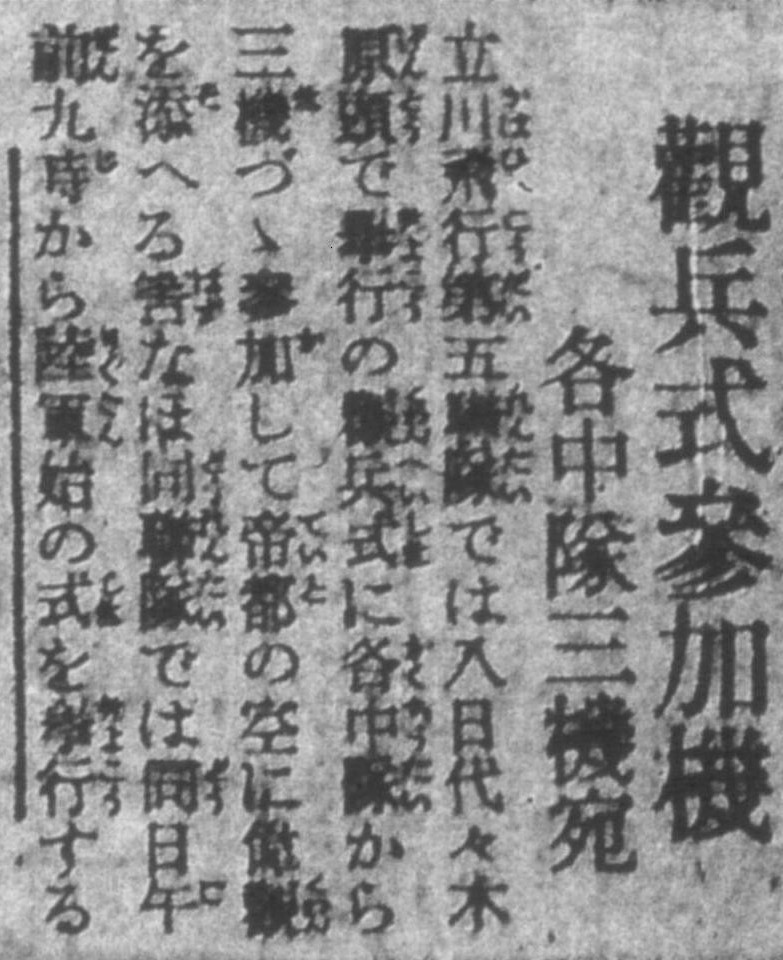 觀兵式參加機
各中隊三機宛
立川飛行第五聯隊では八日代々木
原頭で擧行の觀兵式に各中隊から
三機づゝ參加して帝都の空に偉觀
を添へる筈なほ同聯隊では同日午
前九時から陸軍始の式を擧行する